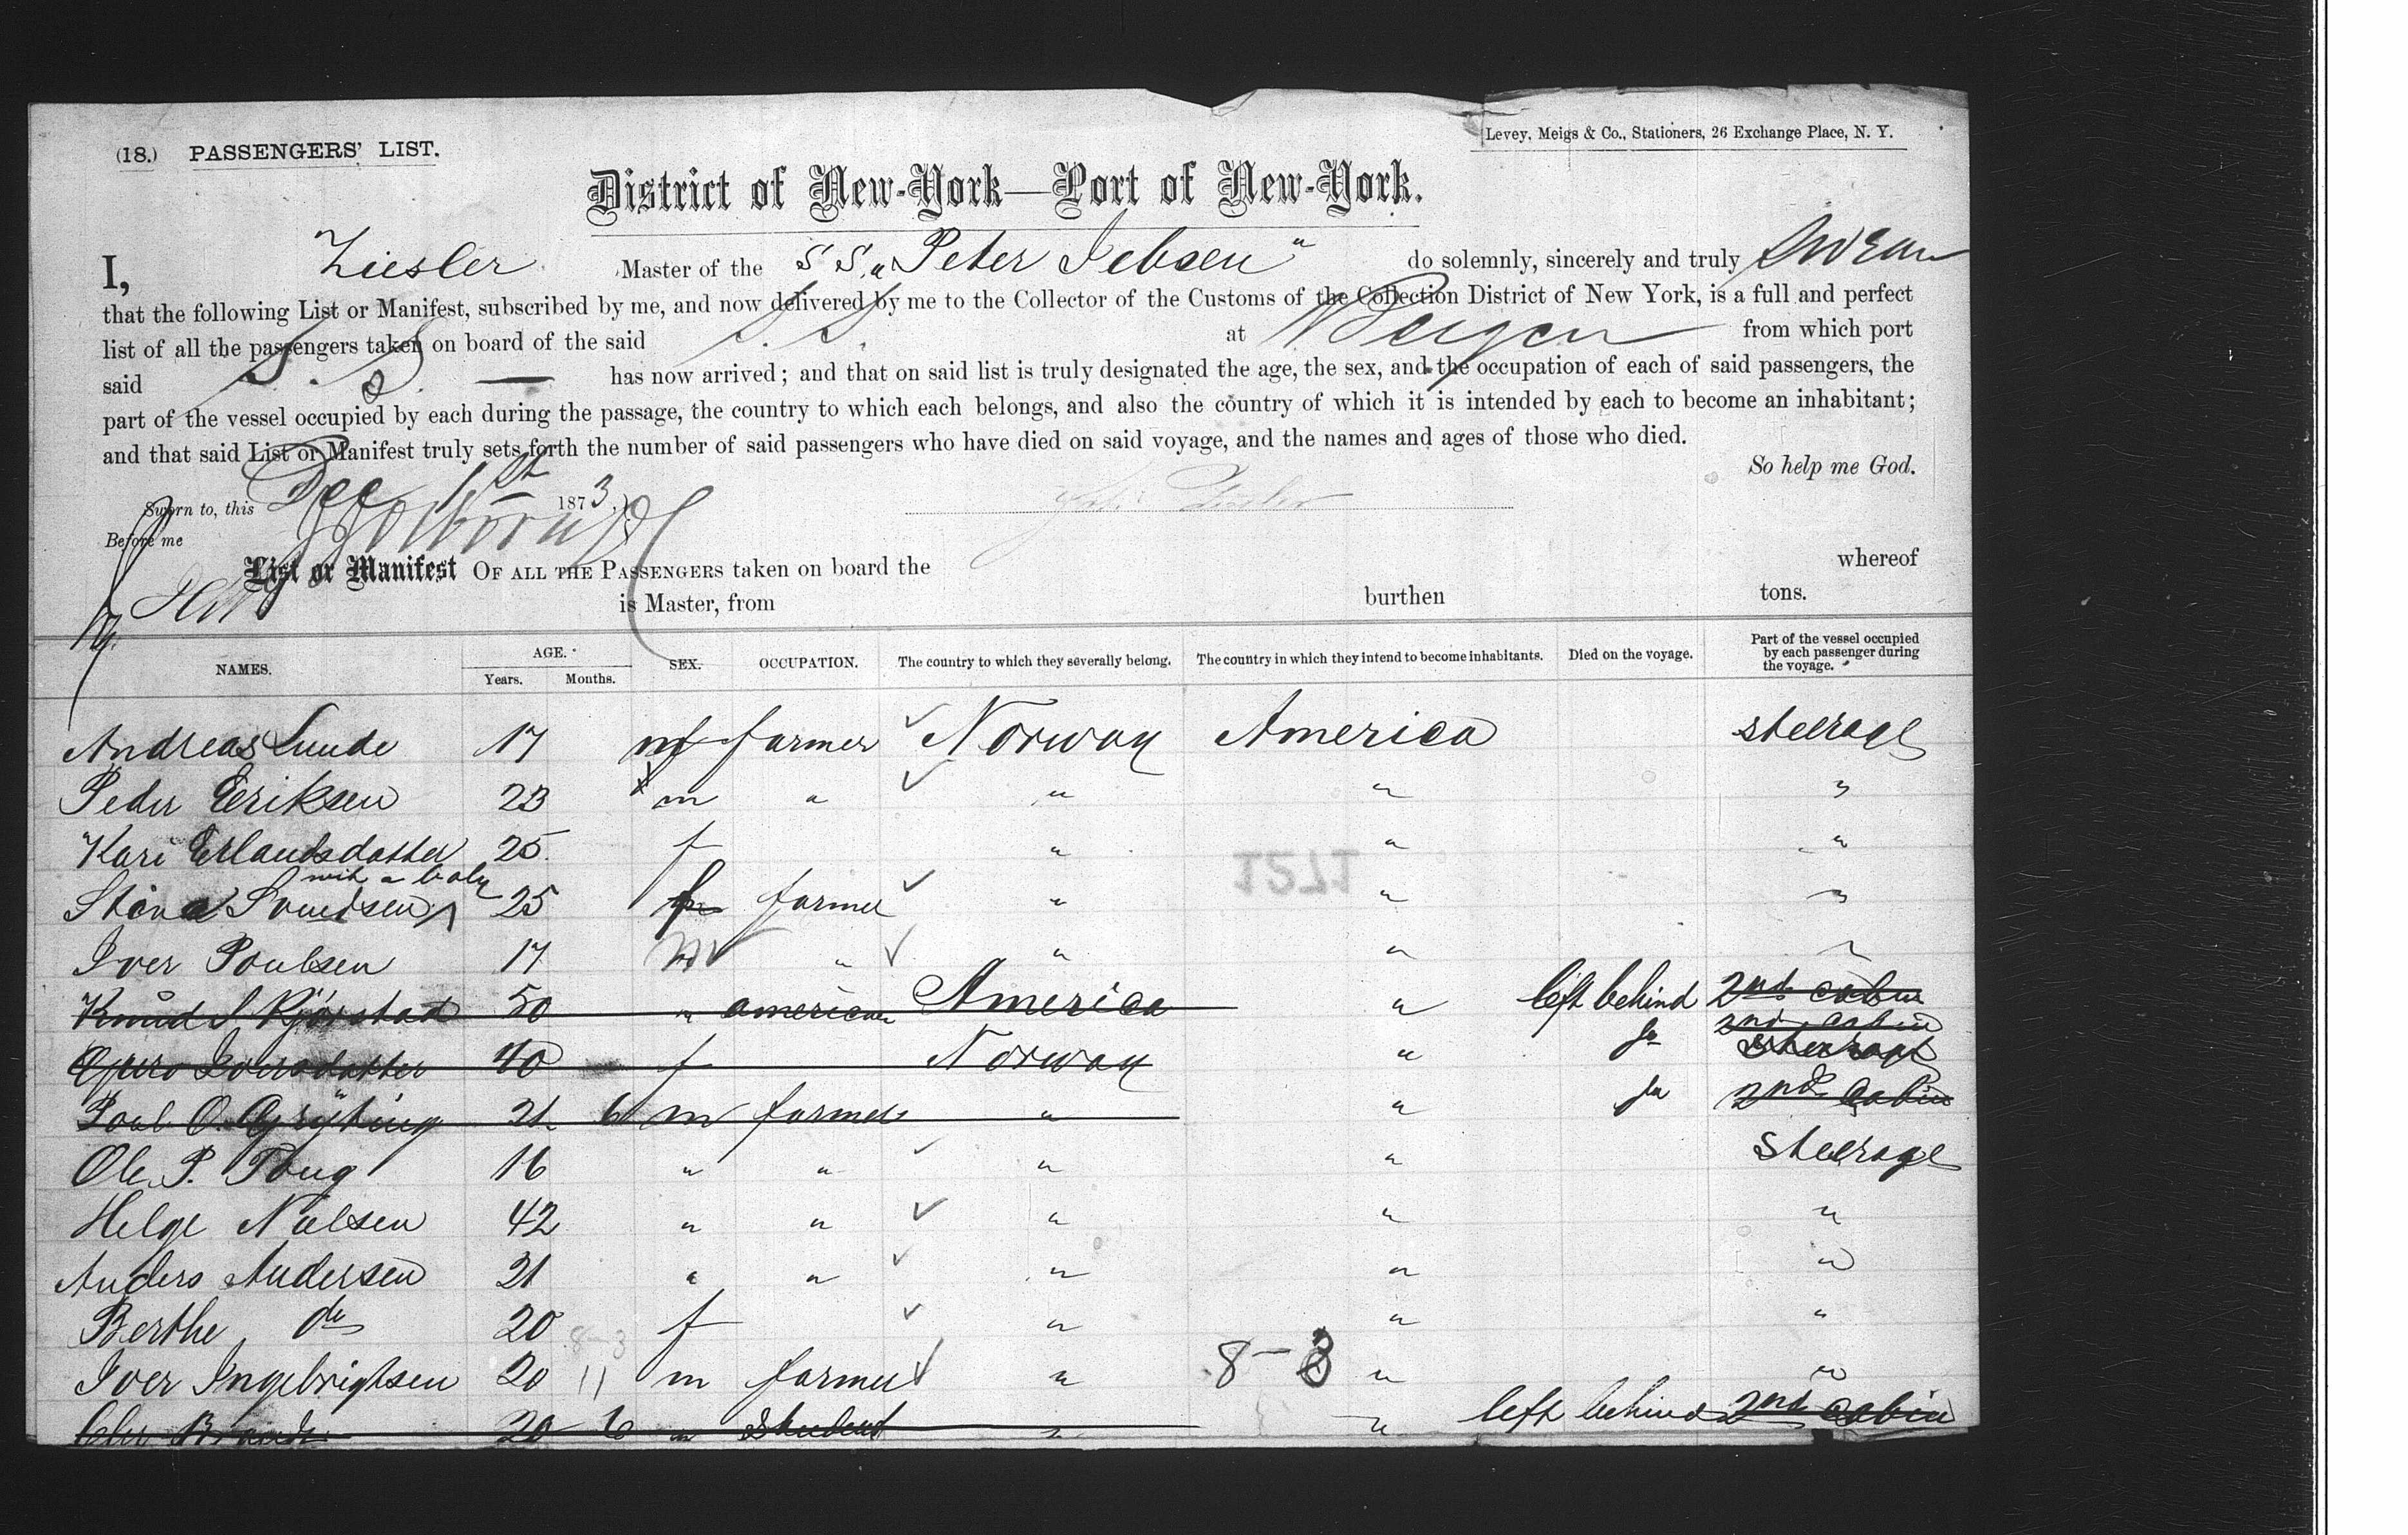 (18.) PASSENGERS' LIST.
Levey, Meigs & Co., Stationers, 26 Exchange Place, N. Y.
District of New-York—Port of New-York.
I, Ziesler Master of the S S "Peter Jebsen" do solemnly, sincerely and truly swear
that the following List or Manifest, subscribed by me, and now delivered by me to the Collector of the Customs of the Collection District of New York, is a full and perfect
list of all the passengers taken on board of the said S. S. at Bergen from which port
said S. S. has now arrived; and that on said list is truly designated the age, the sex, and the occupation of each of said passengers, the
part of the vessel occupied by each during the passage, the country to which each belongs, and also the country of which it is intended by each to become an inhabitant;
and that said List or Manifest truly sets forth the number of said passengers who have died on said voyage, and the names and ages of those who died.
So help me God.
Sworn to, this Dec 1st 1873
Before me
List or Manifest OF ALL THE PASSENGERS taken on board the whereof
is Master, from burthen tons.
NAMES. AGE. Years. Months. SEX. OCCUPATION. The country to which they severally belong. The country in which they intend to become inhabitants. Died on the voyage. Part of the vessel occupied by each passenger during the voyage.
Andreas Lunde 17 m farmer Norway America steerage
Peder Eriksen 23 m " " " "
Kari Erlandsdatter 25 f " " "
with a baby
Svendsen 25 farmer " " "
Iver Poulsen 17 m " " " "
Knud S 50 " american America " left behind 2nd cabin
2nd cabin
Iversdatter 40 f Norway " do steerage
Poul O. 21 6 m farmer " " do 2nd Cabin
Ole. P. 16 " " " " steerage
Helge Nielsen 42 " " " " "
Anders Andersen 21 " " " " "
Berthe do 20 f " " "
8-3
Iver Ingebrigtsen 20 11 m farmer " 8-3 " "
20 6 " student " " left behind 2nd cabin
1271